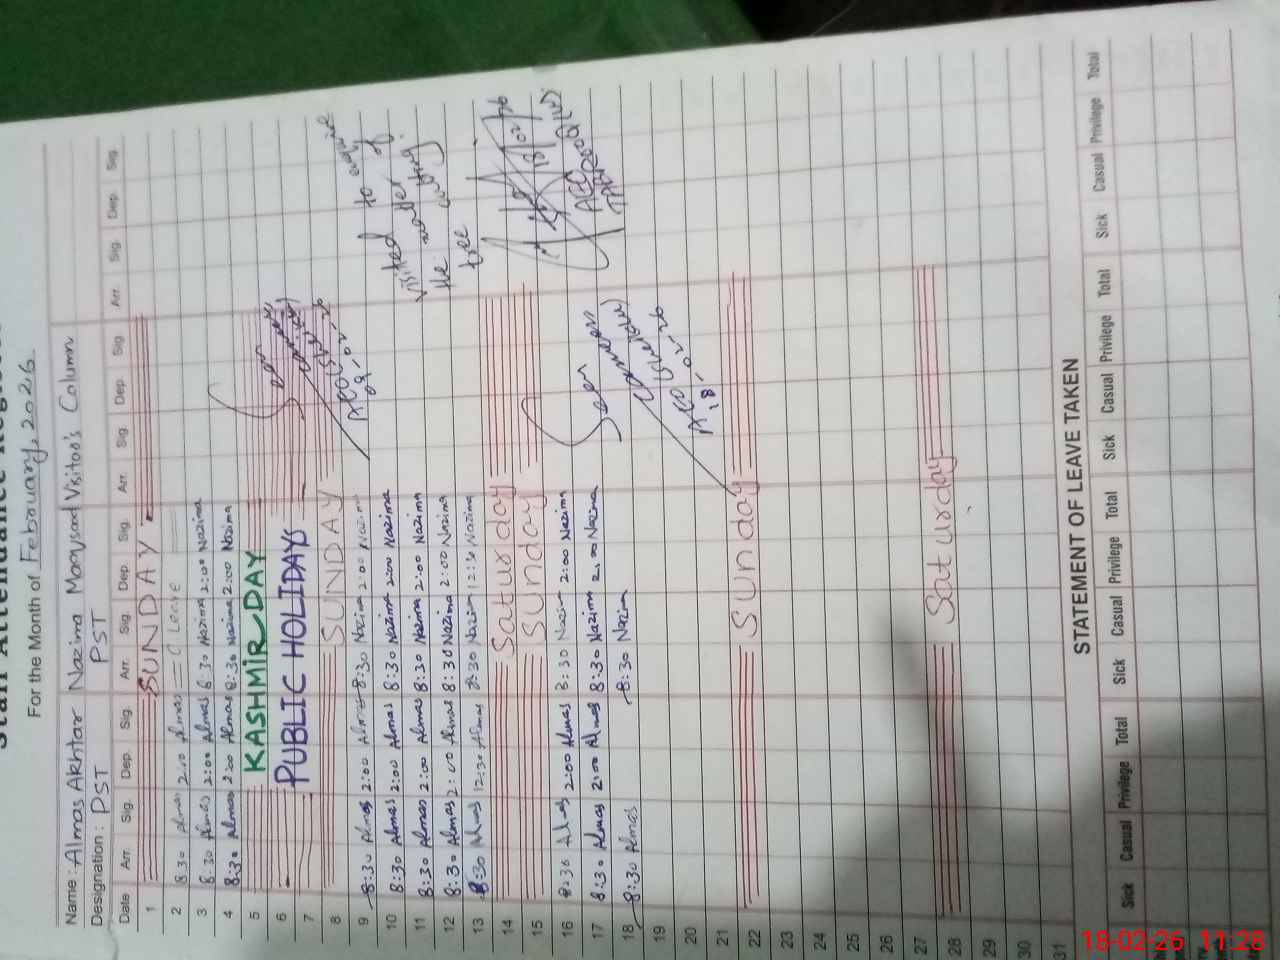 Staff Attendance Regis
For the Month of February, 2026
Name: Almas Akhtar Nazima Maqsood Visitor's Column
Designation: PST PST
Date Arr. Sig. Dep. Sig. Arr. Sig. Dep. Sig. Arr. Sig. Dep. Sig. Arr. Sig. Dep. Sig.
1 SUNDAY
2 8:30 Almas 2:00 Almas C Leave
3 8:30 Almas 2:00 Almas 8:30 Nazima 2:00 Nazima
4 8:30 Almas 2:00 Almas 8:30 Nazima 2:00 Nazima
5 KASHMIR DAY
6 PUBLIC HOLIDAYS
7
8 SUNDAY
9 8:30 Almas 2:00 Almas 8:30 Nazima 2:00 Nazima
10 8:30 Almas 2:00 Almas 8:30 Nazima 2:00 Nazima
11 8:30 Almas 2:00 Almas 8:30 Nazima 2:00 Nazima
12 8:30 Almas 2:00 Almas 8:30 Nazima 2:00 Nazima
13 8:30 Almas 12:30 Almas 8:30 Nazima 12:30 Nazima
14 Saturday
15 Sunday
16 8:30 Almas 2:00 Almas 8:30 Nazima 2:00 Nazima
17 8:30 Almas 2:00 Almas 8:30 Nazima 2:00 Nazima
18 8:30 Almas 8:30 Nazima
19
20
21
22 Sunday
23
24
25
26
27
28 Saturday
29
30
31
09-02-26
visited to enquire
the matter of
tree cutting
18/02/26
18-02-26
STATEMENT OF LEAVE TAKEN
Sick Casual Privilege Total Sick Casual Privilege Total Sick Casual Privilege Total Sick Casual Privilege Total
18-02-26 11:28